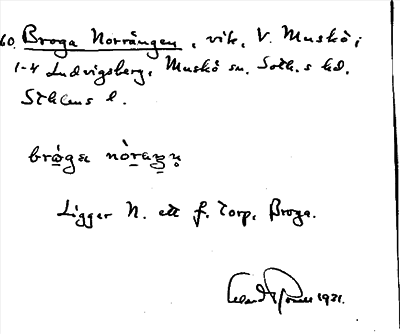 60. Broga Norrängen, vik, V. Muskö;
1-4 Ludvigsberg, Muskö sn. Soth.s hd.
Sthlms l.
brògα nòraŋəṇ
Ligger N. ett f. torp, Broga.
1921.